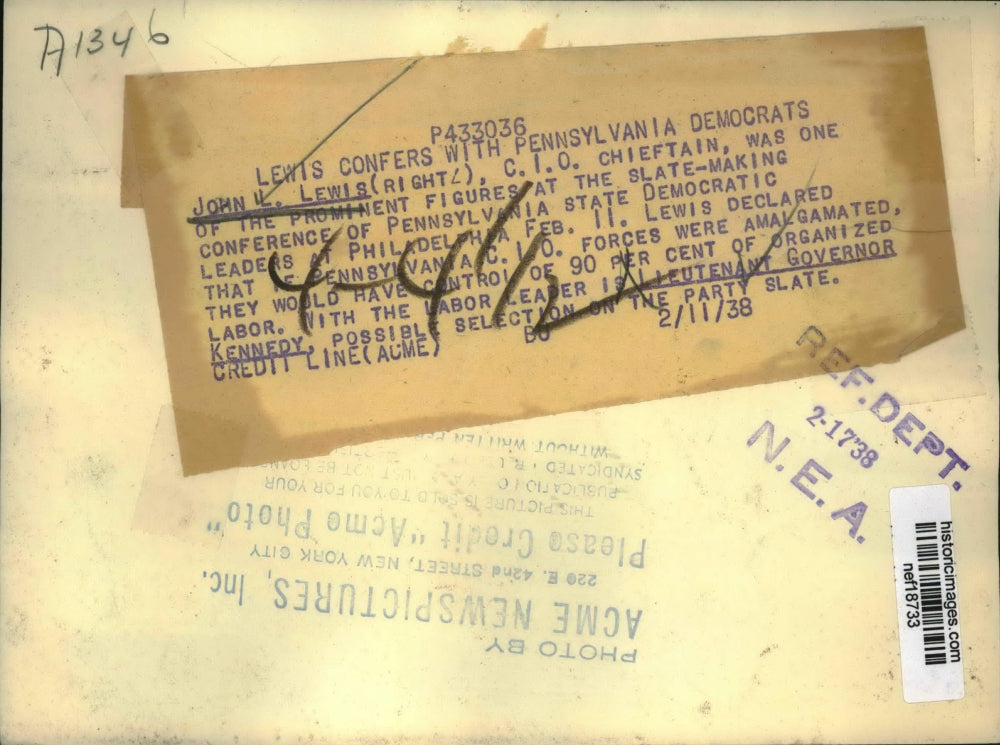 A1346
P433036
LEWIS CONFERS WITH PENNSYLVANIA DEMOCRATS
JOHN L. LEWIS(RIGHT), C.I.O. CHIEFTAIN, WAS ONE
OF THE PROMINENT FIGURES AT THE SLATE-MAKING
CONFERENCE OF PENNSYLVANIA STATE DEMOCRATIC
LEADERS AT PHILADELPHIA FEB. 11. LEWIS DECLARED
THAT IF PENNSYLVANIA C.I.O. FORCES WERE AMALGAMATED,
THEY WOULD HAVE CONTROL OF 90 PER CENT OF ORGANIZED
LABOR. WITH THE LABOR LEADER IS LIEUTENANT GOVERNOR
KENNEDY, POSSIBLE SELECTION ON THE PARTY SLATE.
CREDIT LINE(ACME) BU 2/11/38
4-4 1/2
REF. DEPT.
2-17'38
N. E. A.
historicimages.com
nef18733
PHOTO BY
ACME NEWSPICTURES, Inc.
220 E. 42nd STREET, NEW YORK CITY
Please Credit "Acme Photo"
THIS PICTURE IS SOLD TO YOU FOR YOUR
PUBLICATIO
SYNDICATED NOT BE LOANE
WITHOUT WRITTEN PER